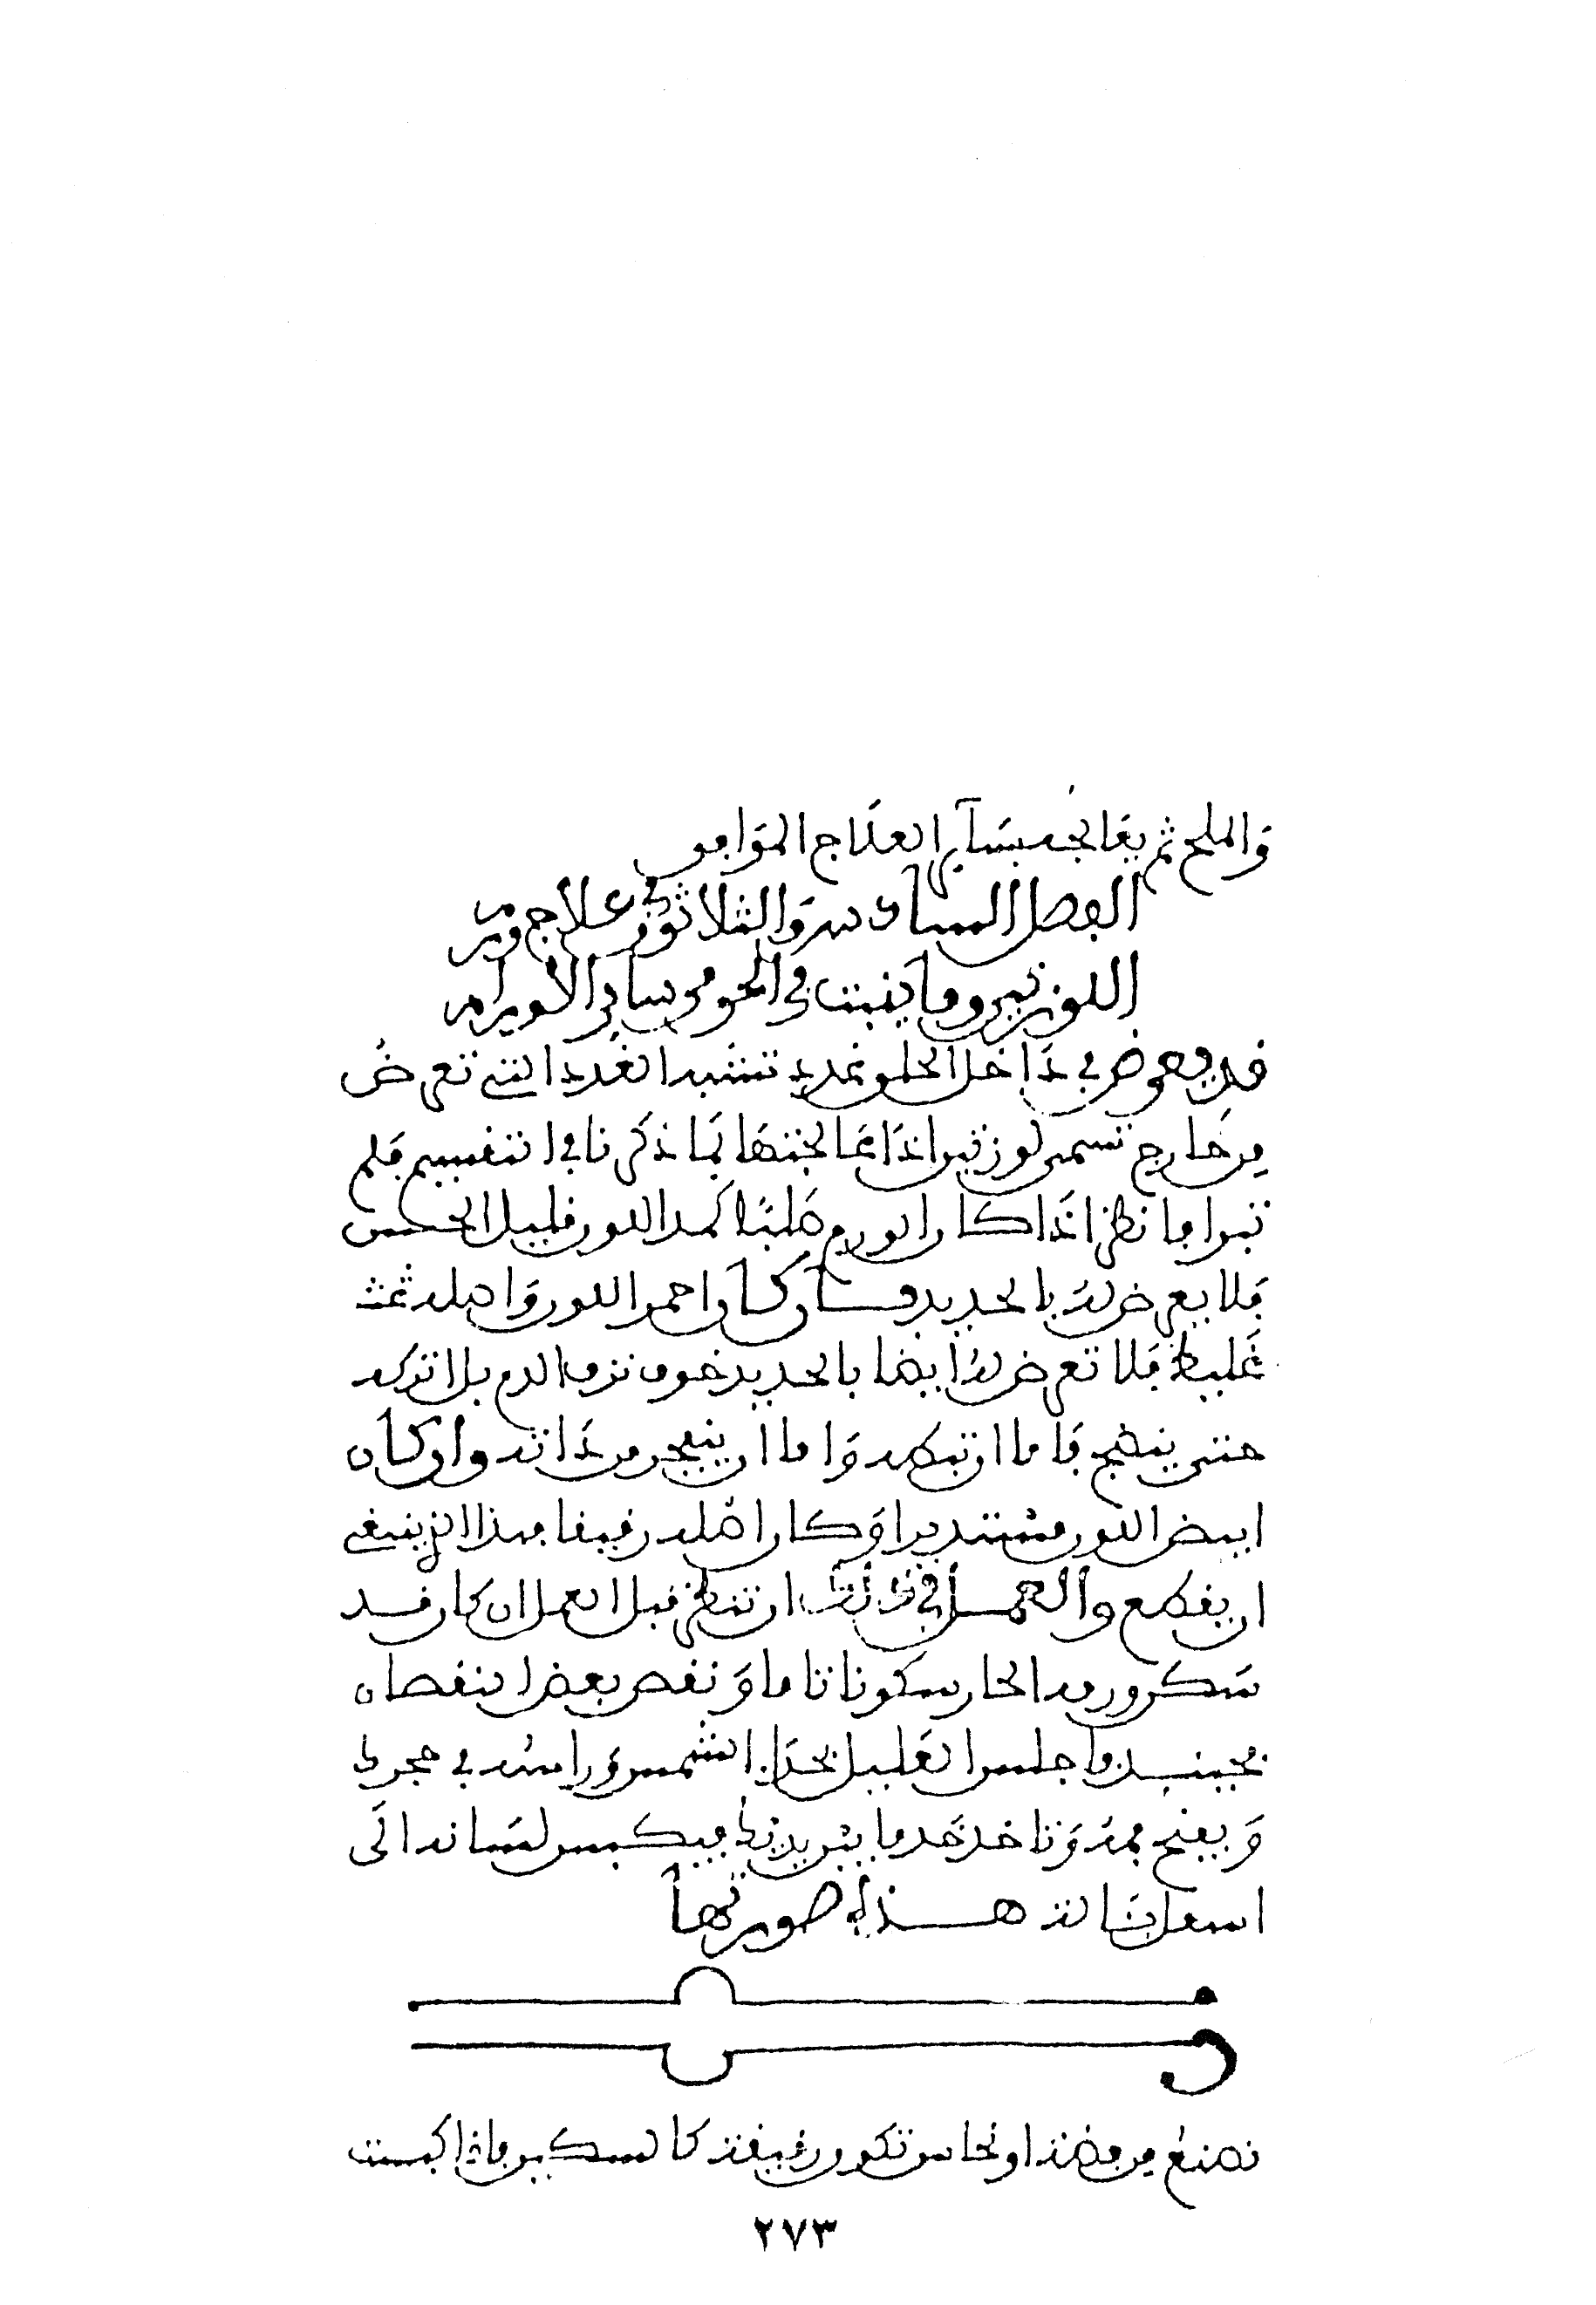 والملح ثم يعالجه بسآير العلاج الموافق
الفصل السادس والثلاثون في علاج ورم
اللوزتين وما ينبت في الحلق من ساير الاورام
قد يعرض في داخل الحلق غدد تشبه الغدد التي تعرض
من خارج تسمى لوزتين اذا عالجتها بما ذكرنا في التقسيم فلم
تبرا فانظر اذا كان الورم صلبا كمد اللون قليل الحس
فلا تعرض له بالحديد وان كان احمر اللون واصله
غليظ فلا تعرض له ايضا بالحديد خوف نزف الدم بل اتركه
حتى ينضج فاما ان تبطه واما ان ينفجر من ذاته وان كان
ابيض اللون مستديرا وكان اصله رقيقا فهذا الذي ينبغي
ان يقطع والعمل في ذلك ان تنظر قبل العمل ان كان قد
سكن ورمه الحار سكونا تاما ونقص بعض النقصان
فحينيذ فاجلس العليل بحذا الشمس وراسه في حجرك
ويفتح فمه وتاخذ خادما بين يديك فيكبس لسانه الى
اسفل بئالة هذه صورتها
تصنع من فضة او نحاس تكون رقيقة كالسكين فاذا كبست
٢٧٣